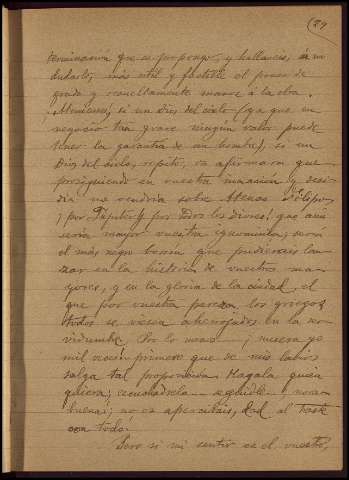 (29
terminación que se propongo, y hallareis, sin
dudarlo, más util y factible el poner de
grado y resueltamente manos á la obra.
Atenienses, si un Dios del cielo (ya que en
negocio tan grave ningún valor puede
tener la garantía de un hombre), si un
Dios del cielo, repito, os afirmara que
persiguiendo en vuestra inacción y desi-
dia no vendría sobre Atenas Filipo,
¡por Júpiter y por todos los dioses, que aun
sería mayor vuestra ignominia, sería
el más negro borrón que pudierais lan-
zar en la historia de vuestros ma-
yores, y en la gloria de la ciudad, el
que por vuestra pereza los griegos
todos se viesen aherrojados en la ser-
vidumbre. Por lo menos ¡muera yo
mil veces primero que de mis labios
salga tal proposición. Hágala quien
quiera; escuchadle seguidle, nora-
buena; no os apercibáis, dad al traste
con todo.
Pero si mi sentir es el vuestro,